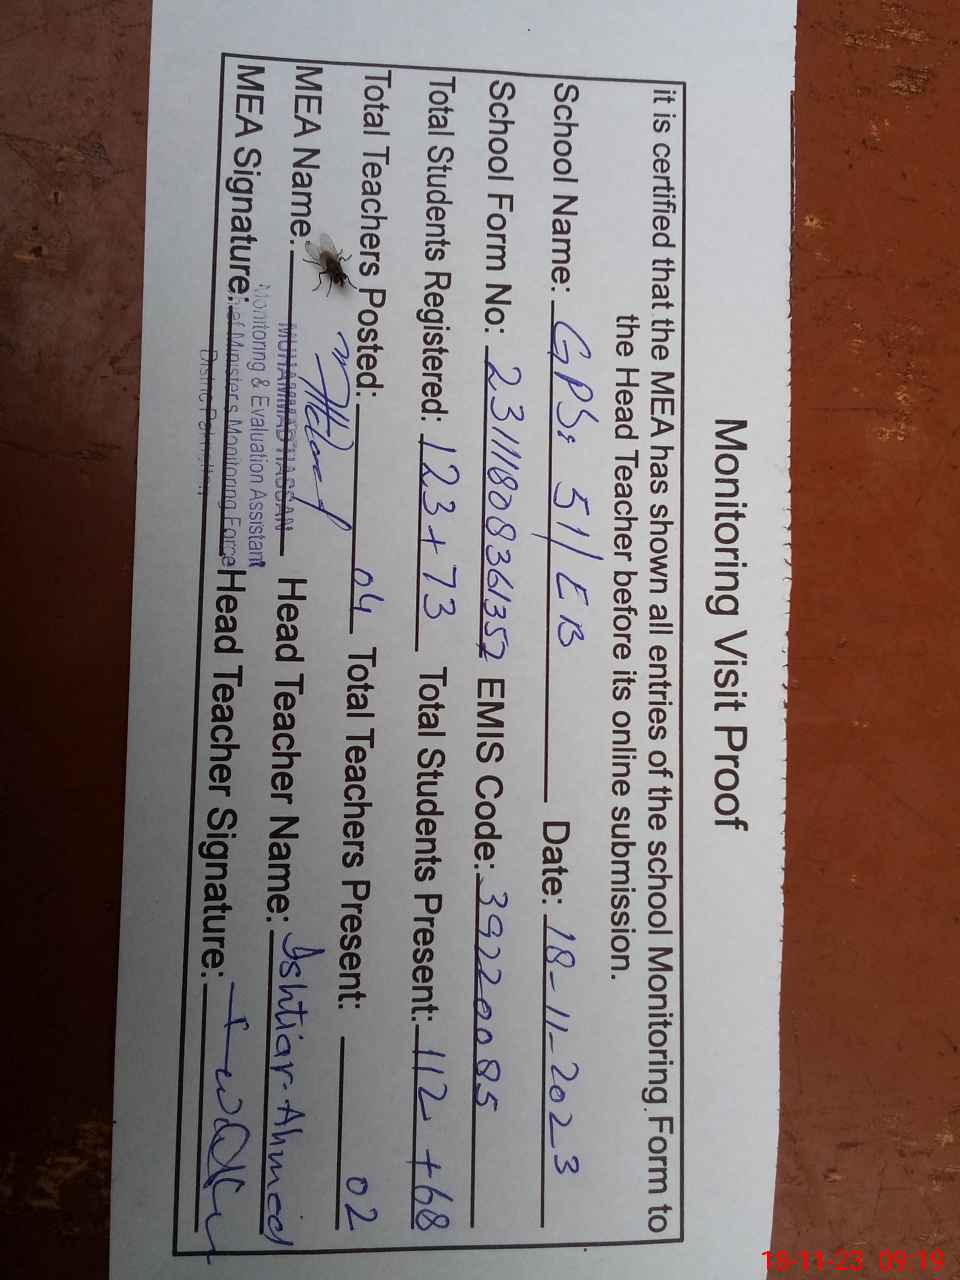 Monitoring Visit Proof
it is certified that the MEA has shown all entries of the school Monitoring Form to
the Head Teacher before its online submission.
School Name: GPS: 51/EB Date: 18-11-2023
School Form No: 23111808361352 EMIS Code: 39220085
Total Students Registered: 123+73 Total Students Present: 112+68
Total Teachers Posted: 04 Total Teachers Present: 02
MEA Name: MUHAMMAD HASSAN Head Teacher Name: Ishtiaq Ahmed
Monitoring & Evaluation Assistant
MEA Signature: Chief Minister's Monitoring Force Head Teacher Signature:
District Pakpattan
18-11-23 09:19